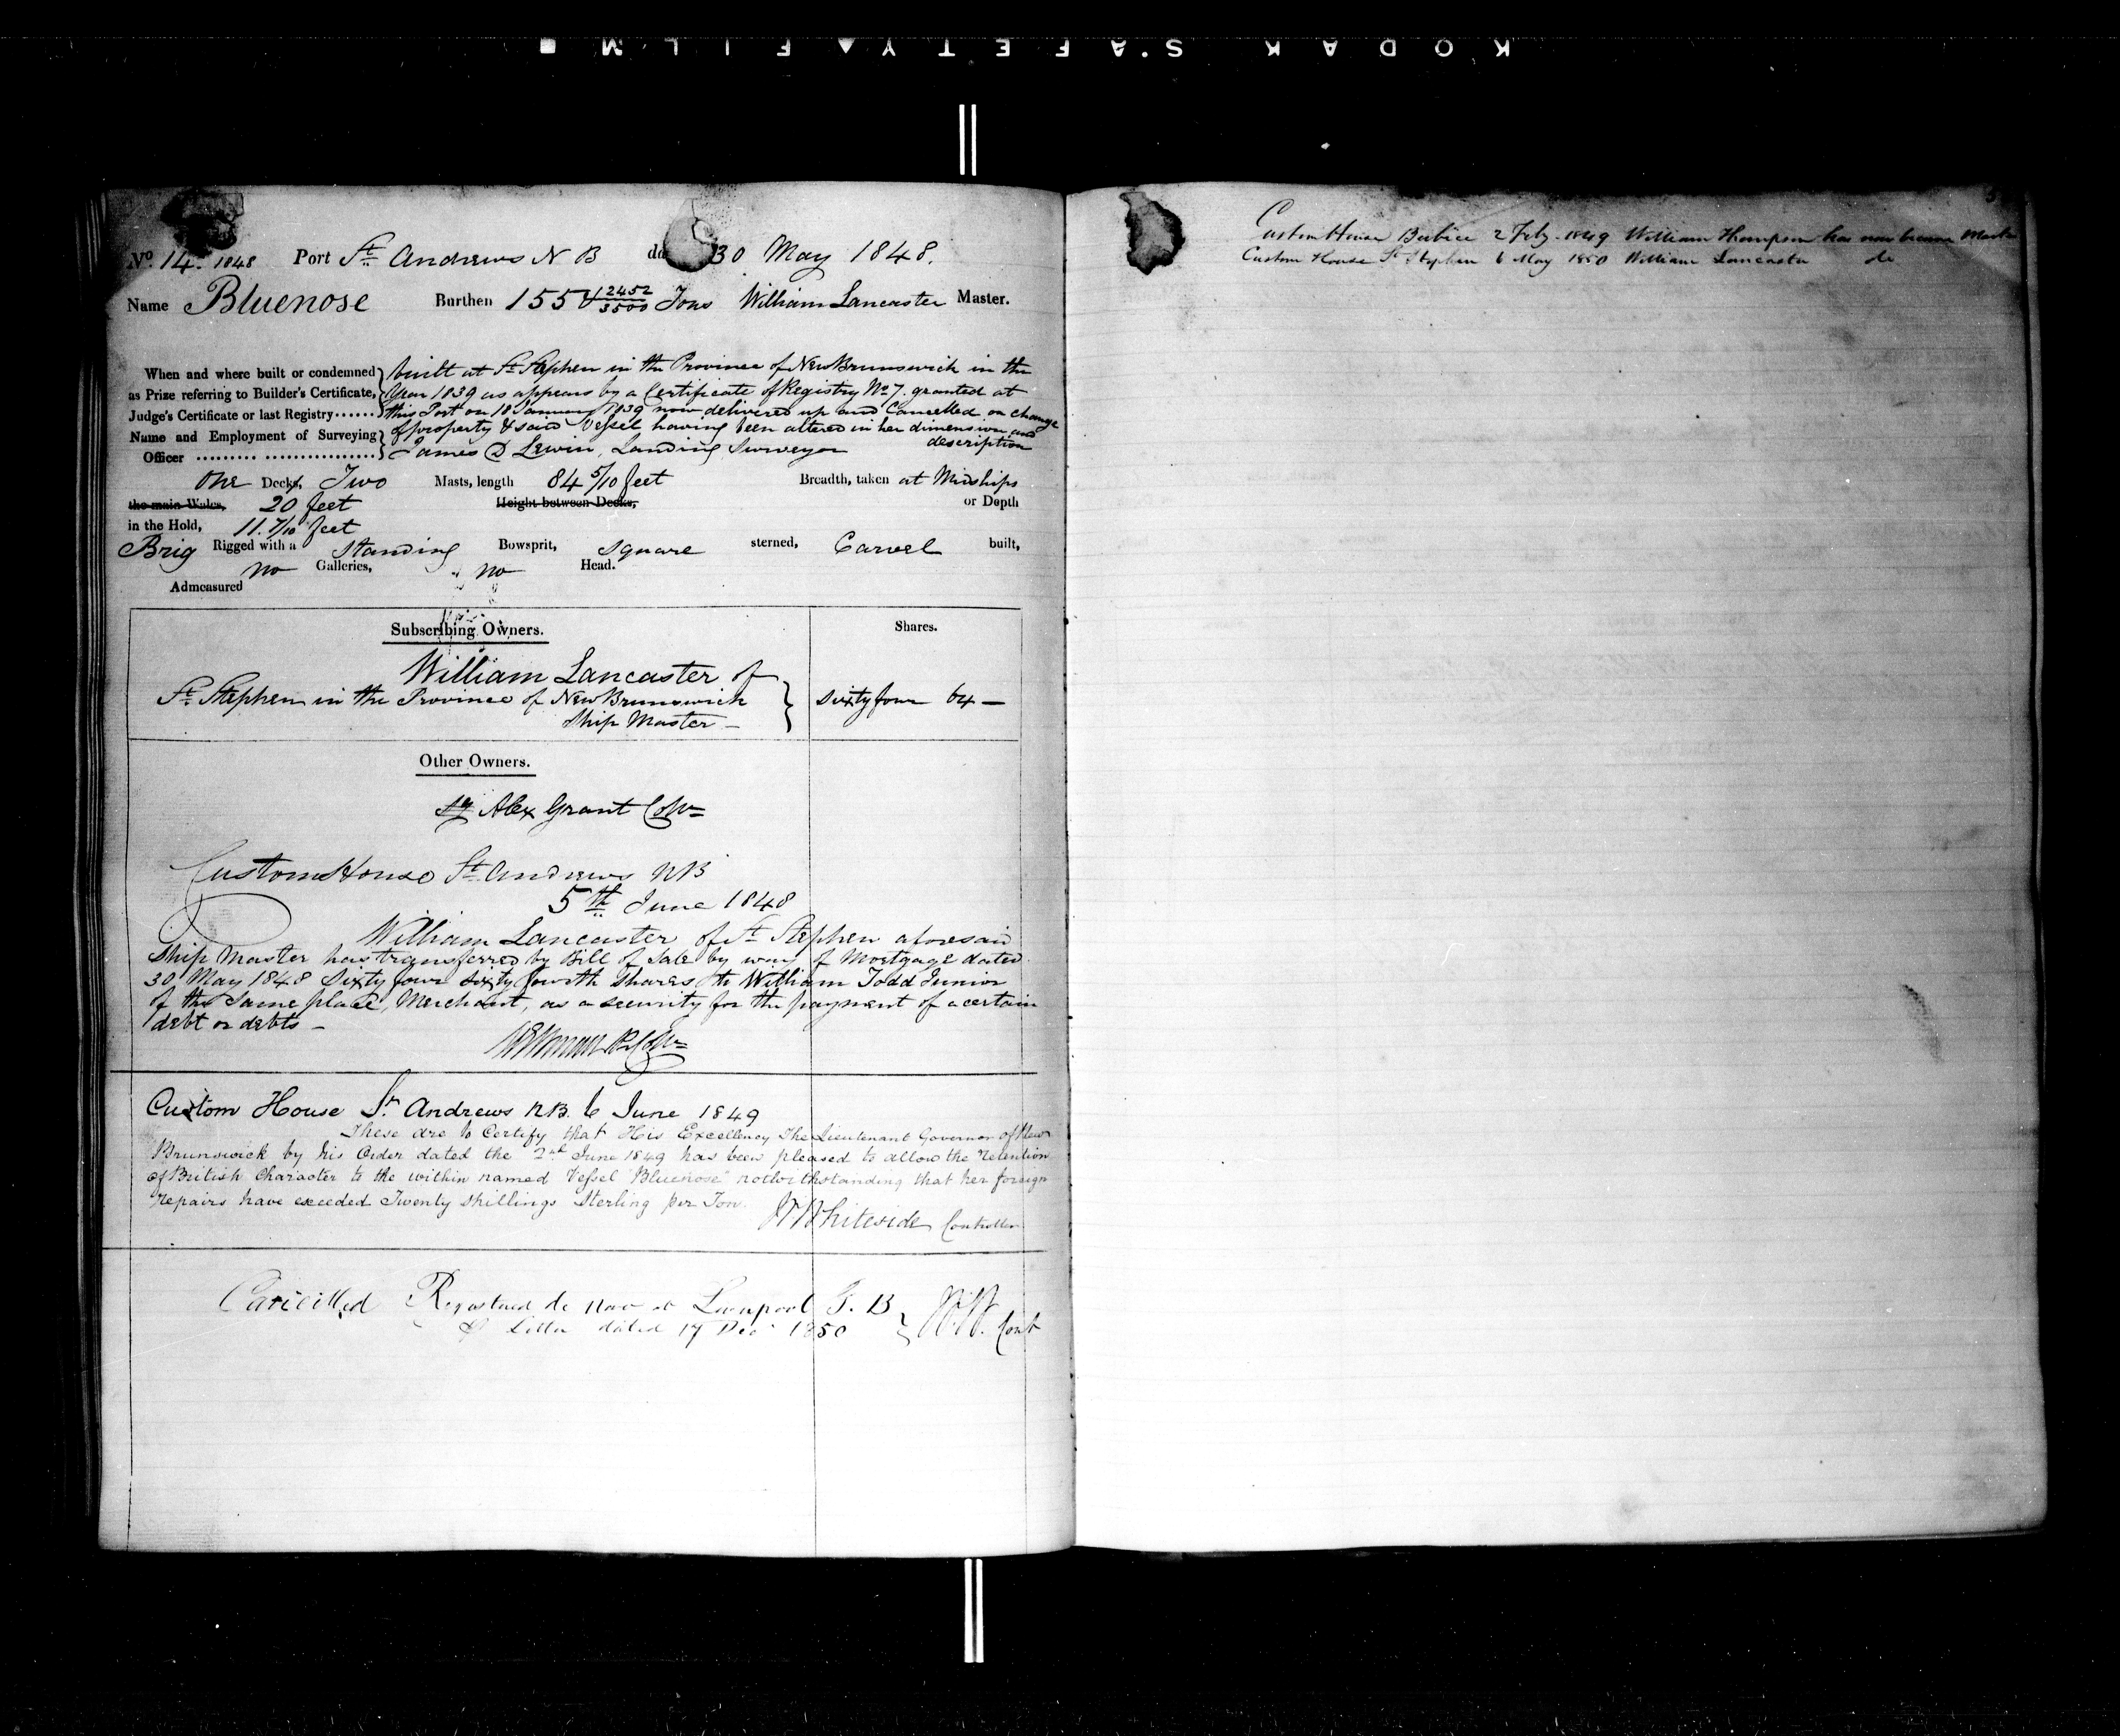 KODAK SAFETY FILM
No. 14. 1848 Port St. Andrews N B 30 May 1848.
Name Bluenose Burthen 155 & 2452/3500 Tons William Lancaster Master.
When and where built or condemned built at St. Stephen in the Province of New Brunswick in the
as Prize referring to Builder's Certificate, Year 1839 as appears by a Certificate of Registry No 7. granted at
Judge's Certificate or last Registry...... this Port on 18 January 1839 now delivered up and Cancelled on change
of property & said Vessel having been altered in her dimension and description
Name and Employment of Surveying
Officer ......... ................ James D Lewin, Landing Surveyor
One Decks, Two Masts, length 84 5/10 feet Breadth, taken at Midships
the main Wales, 20 feet Height between Decks, or Depth
in the Hold, 11. 7/10 feet
Brig Rigged with a Standing Bowsprit, square sterned, Carvel built,
no Galleries, no Head.
Admeasured
Subscribing Owners. Shares.
William Lancaster of
St. Stephen in the Province of New Brunswick Sixty four 64 —
Ship Master —
Other Owners.
Alex Grant
Custom House St. Andrews NB
5th June 1848
William Lancaster of St Stephen aforesaid
Ship Master has transferred by Bill of Sale by way of Mortgage dated
30 May 1848 Sixty four sixty fourth Shares to William Todd Junior
of the Same place, Merchant, as a security for the payment of a certain
debt or debts —
Custom House St. Andrews N.B. 6 June 1849
These are to Certify that His Excellency The Lieutenant Governor of New
Brunswick by his Order dated the 2nd June 1849 has been pleased to allow the retention
of British Character to the within named Vessel "Bluenose" notwithstanding that her foreign
repairs have exceeded Twenty shillings Sterling per Ton.
Whiteside Controller
Cancelled Registered de novo at Liverpool G. B
Letter dated 17 Dec 1850 Cont
Custom House Berbice 2 Feby. 1849 William Thompson has now become Master
Custom House St Stephen 6 May 1850 William Lancaster do